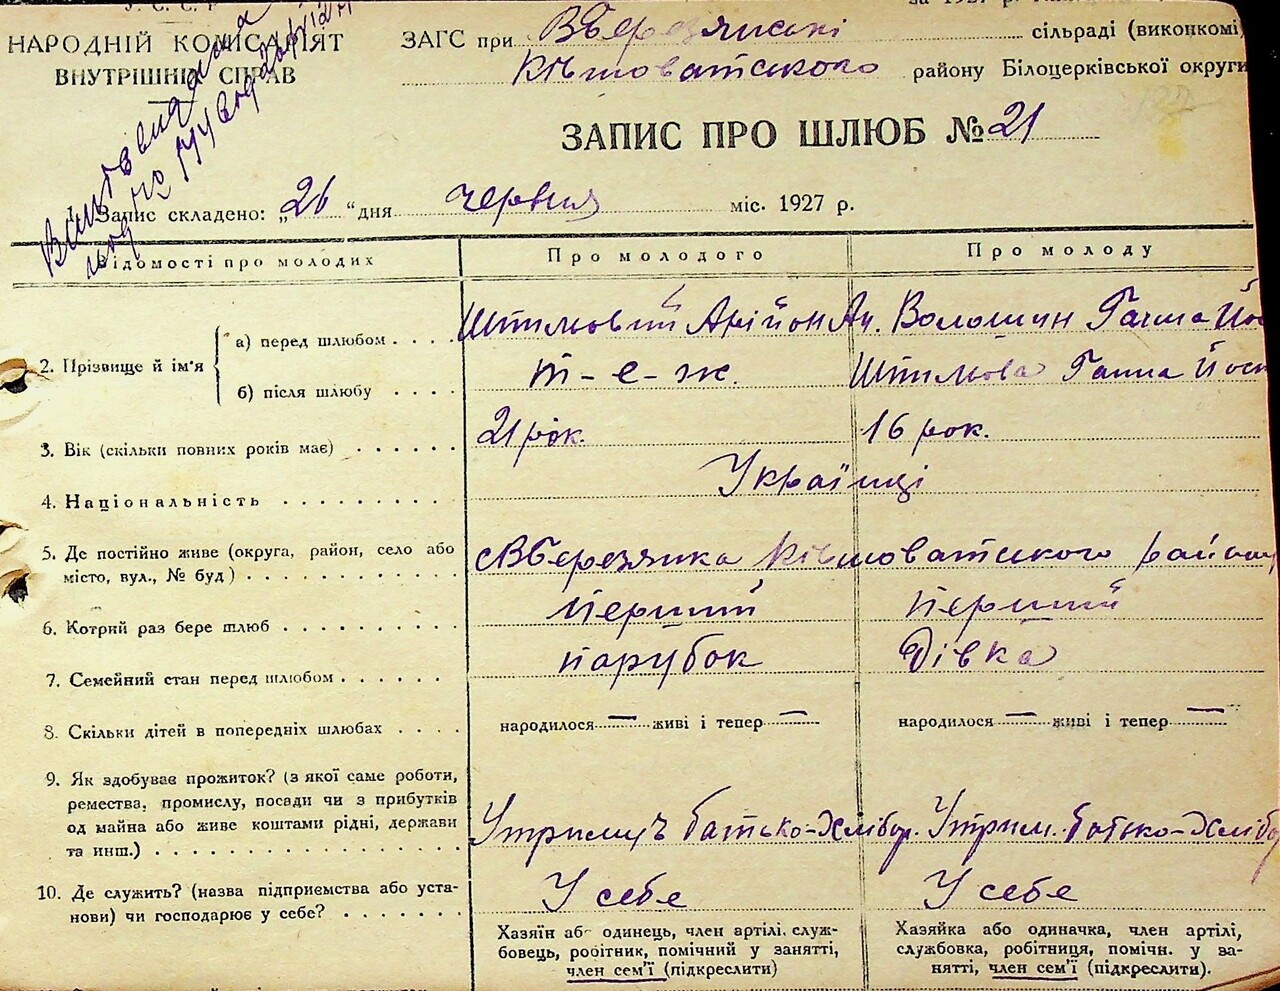 У. С. С. Р.
за 1927 р.
НАРОДНІЙ КОМІСАРІЯТ
ВНУТРІШНІХ СПРАВ
ЗАГС при ВБерезянські сільраді (виконкомі)
Ківшоватського району Білоцерківської округи
ЗАПИС ПРО ШЛЮБ № 21
Запис складено: „26“ дня червня міс. 1927 р.
Відомості про молодих
Про молодого
Про молоду
2. Прізвище й ім'я
а) перед шлюбом
Арійон Ан. Волошин Ганна Йос
б) після шлюбу
т-е-ж. Ганна Йосп
3. Вік (скільки повних років має)
21 рок. 16 рок.
4. Національність
Українці
5. Де постійно живе (округа, район, село або
місто, вул., № буд)
с ВБерезянка Ківшоватського району
6. Котрий раз бере шлюб
перший перший
7. Семейний стан перед шлюбом
парубок Дівка
8. Скільки дітей в попередніх шлюбах
народилося — живі і тепер — народилося — живі і тепер —
9. Як здобуває прожиток? (з якої саме роботи,
ремества, промислу, посади чи з прибутків
од майна або живе коштами рідні, держави
та инш.)
батько-Хлібор. Утрим. батько-Хлібо
10. Де служить? (назва підприємства або уста-
нови) чи господарює у себе?
У себе У себе
Хазяїн або одинець, член артілі, служ-
бовець, робітник, помічний у занятті,
член сем'ї (підкреслити)
Хазяйка або одиначка, член артілі,
службовка, робітниця, помічн. у за-
нятті, член сем'ї (підкреслити).